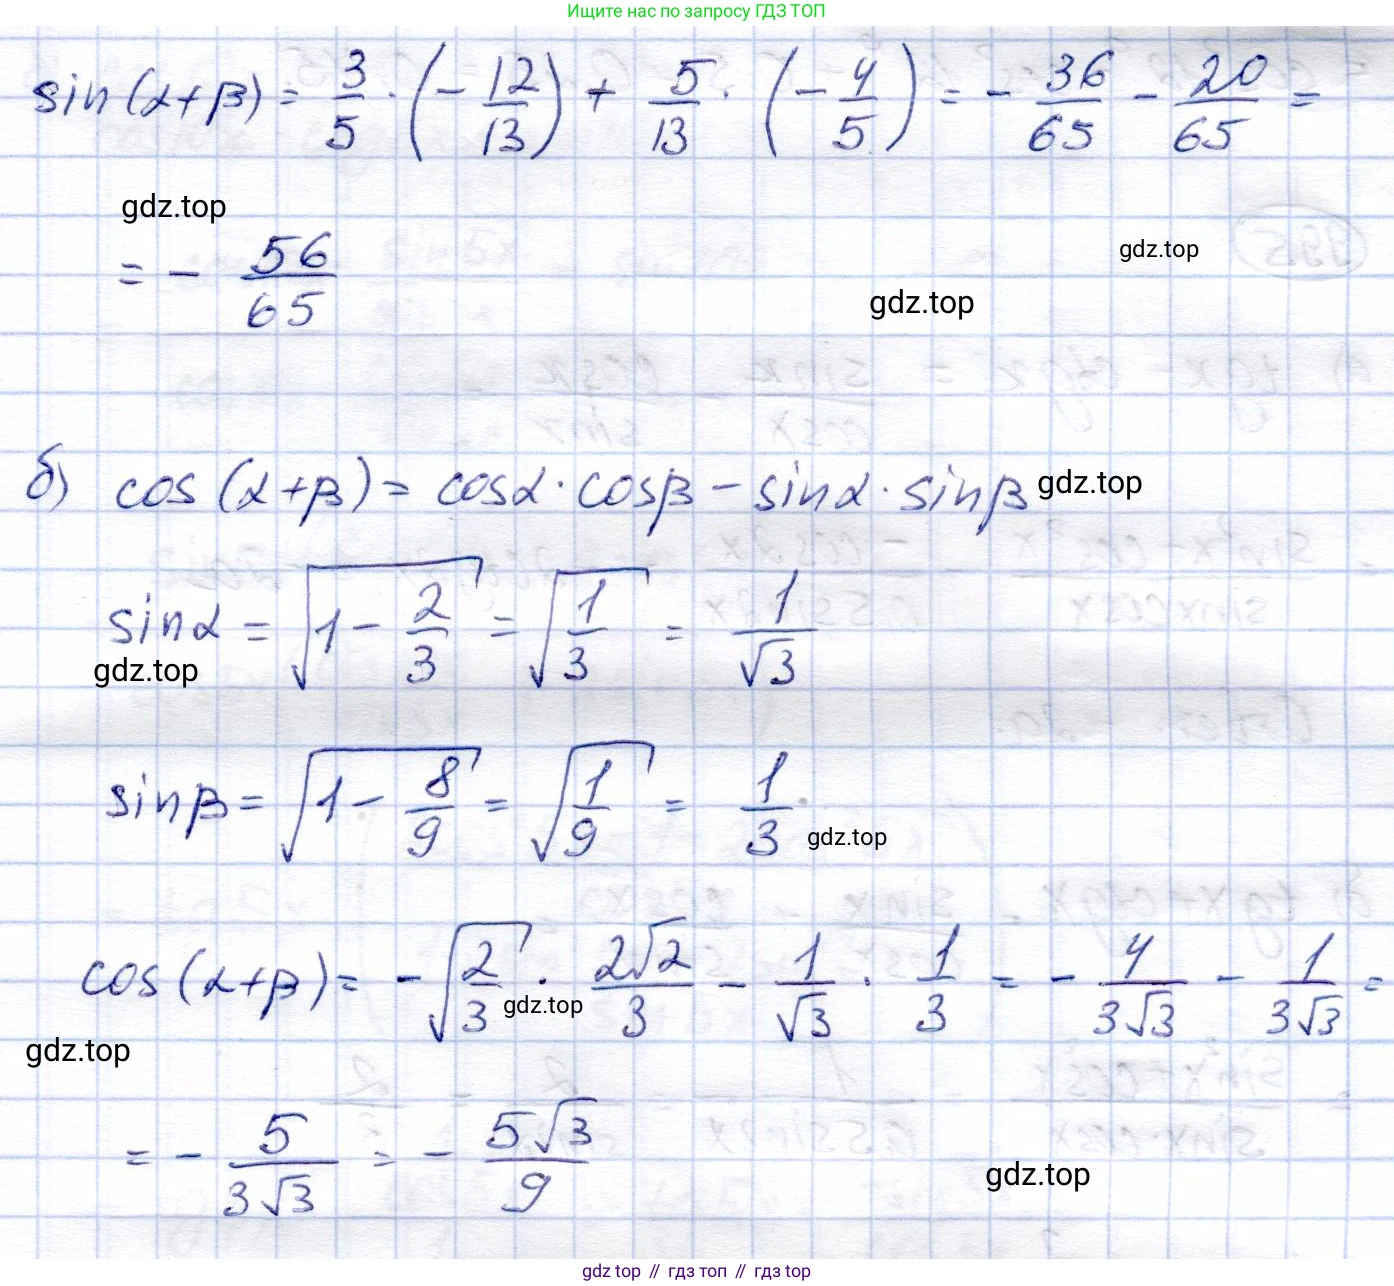 Ищите нас по запросу ГДЗ ТОП
sin(α+β) = 3/5 · (− 12/13) + 5/13 · (− 4/5) = − 36/65 − 20/65 =
gdz.top
= − 56/65
gdz.top
gdz.top
б) cos(α+β) = cosα · cosβ − sinα · sinβ
gdz.top
sinα = √(1 − 2/3) = √(1/3) = 1/√3
gdz.top
sinβ = √(1 − 8/9) = √(1/9) = 1/3
gdz.top
cos(α+β) = −√(2/3) · 2√2/3 − 1/√3 · 1/3 = − 4/3√3 − 1/3√3 =
gdz.top
gdz.top
= − 5/3√3 = − 5√3/9
gdz.top
gdz top // гдз топ // гдз top